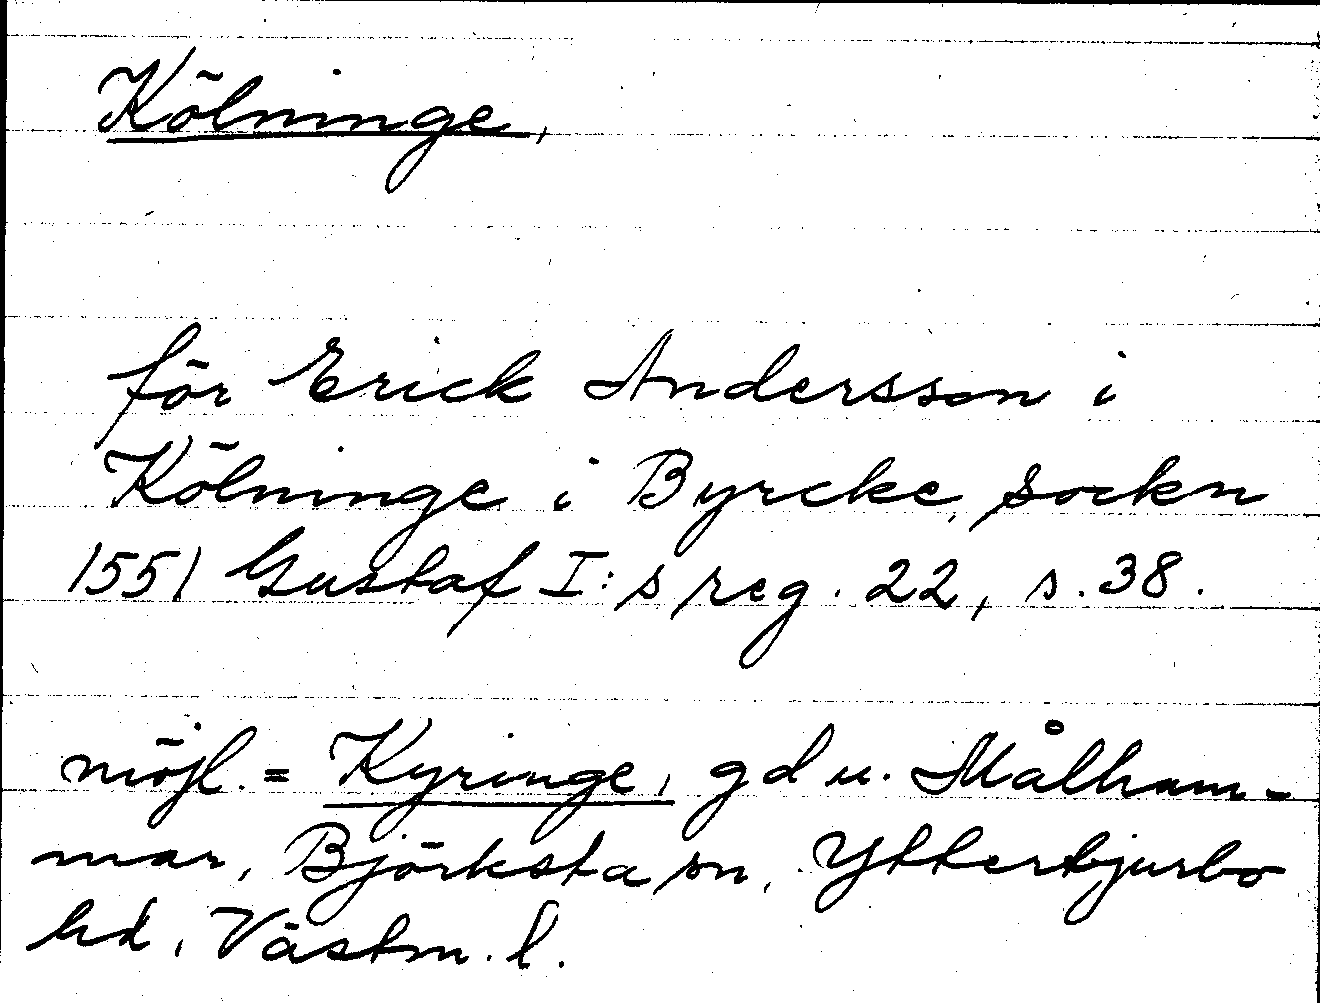 Kölninge,
för Erick Andersson i
Kölninge i Byrcke, sockn
1551 Gustaf I:s reg. 22, s. 38.
möjl. = Kyringe, gd u. Målham-
mar, Björksta sn, Ytterbjurbo
hd, Västm. l.